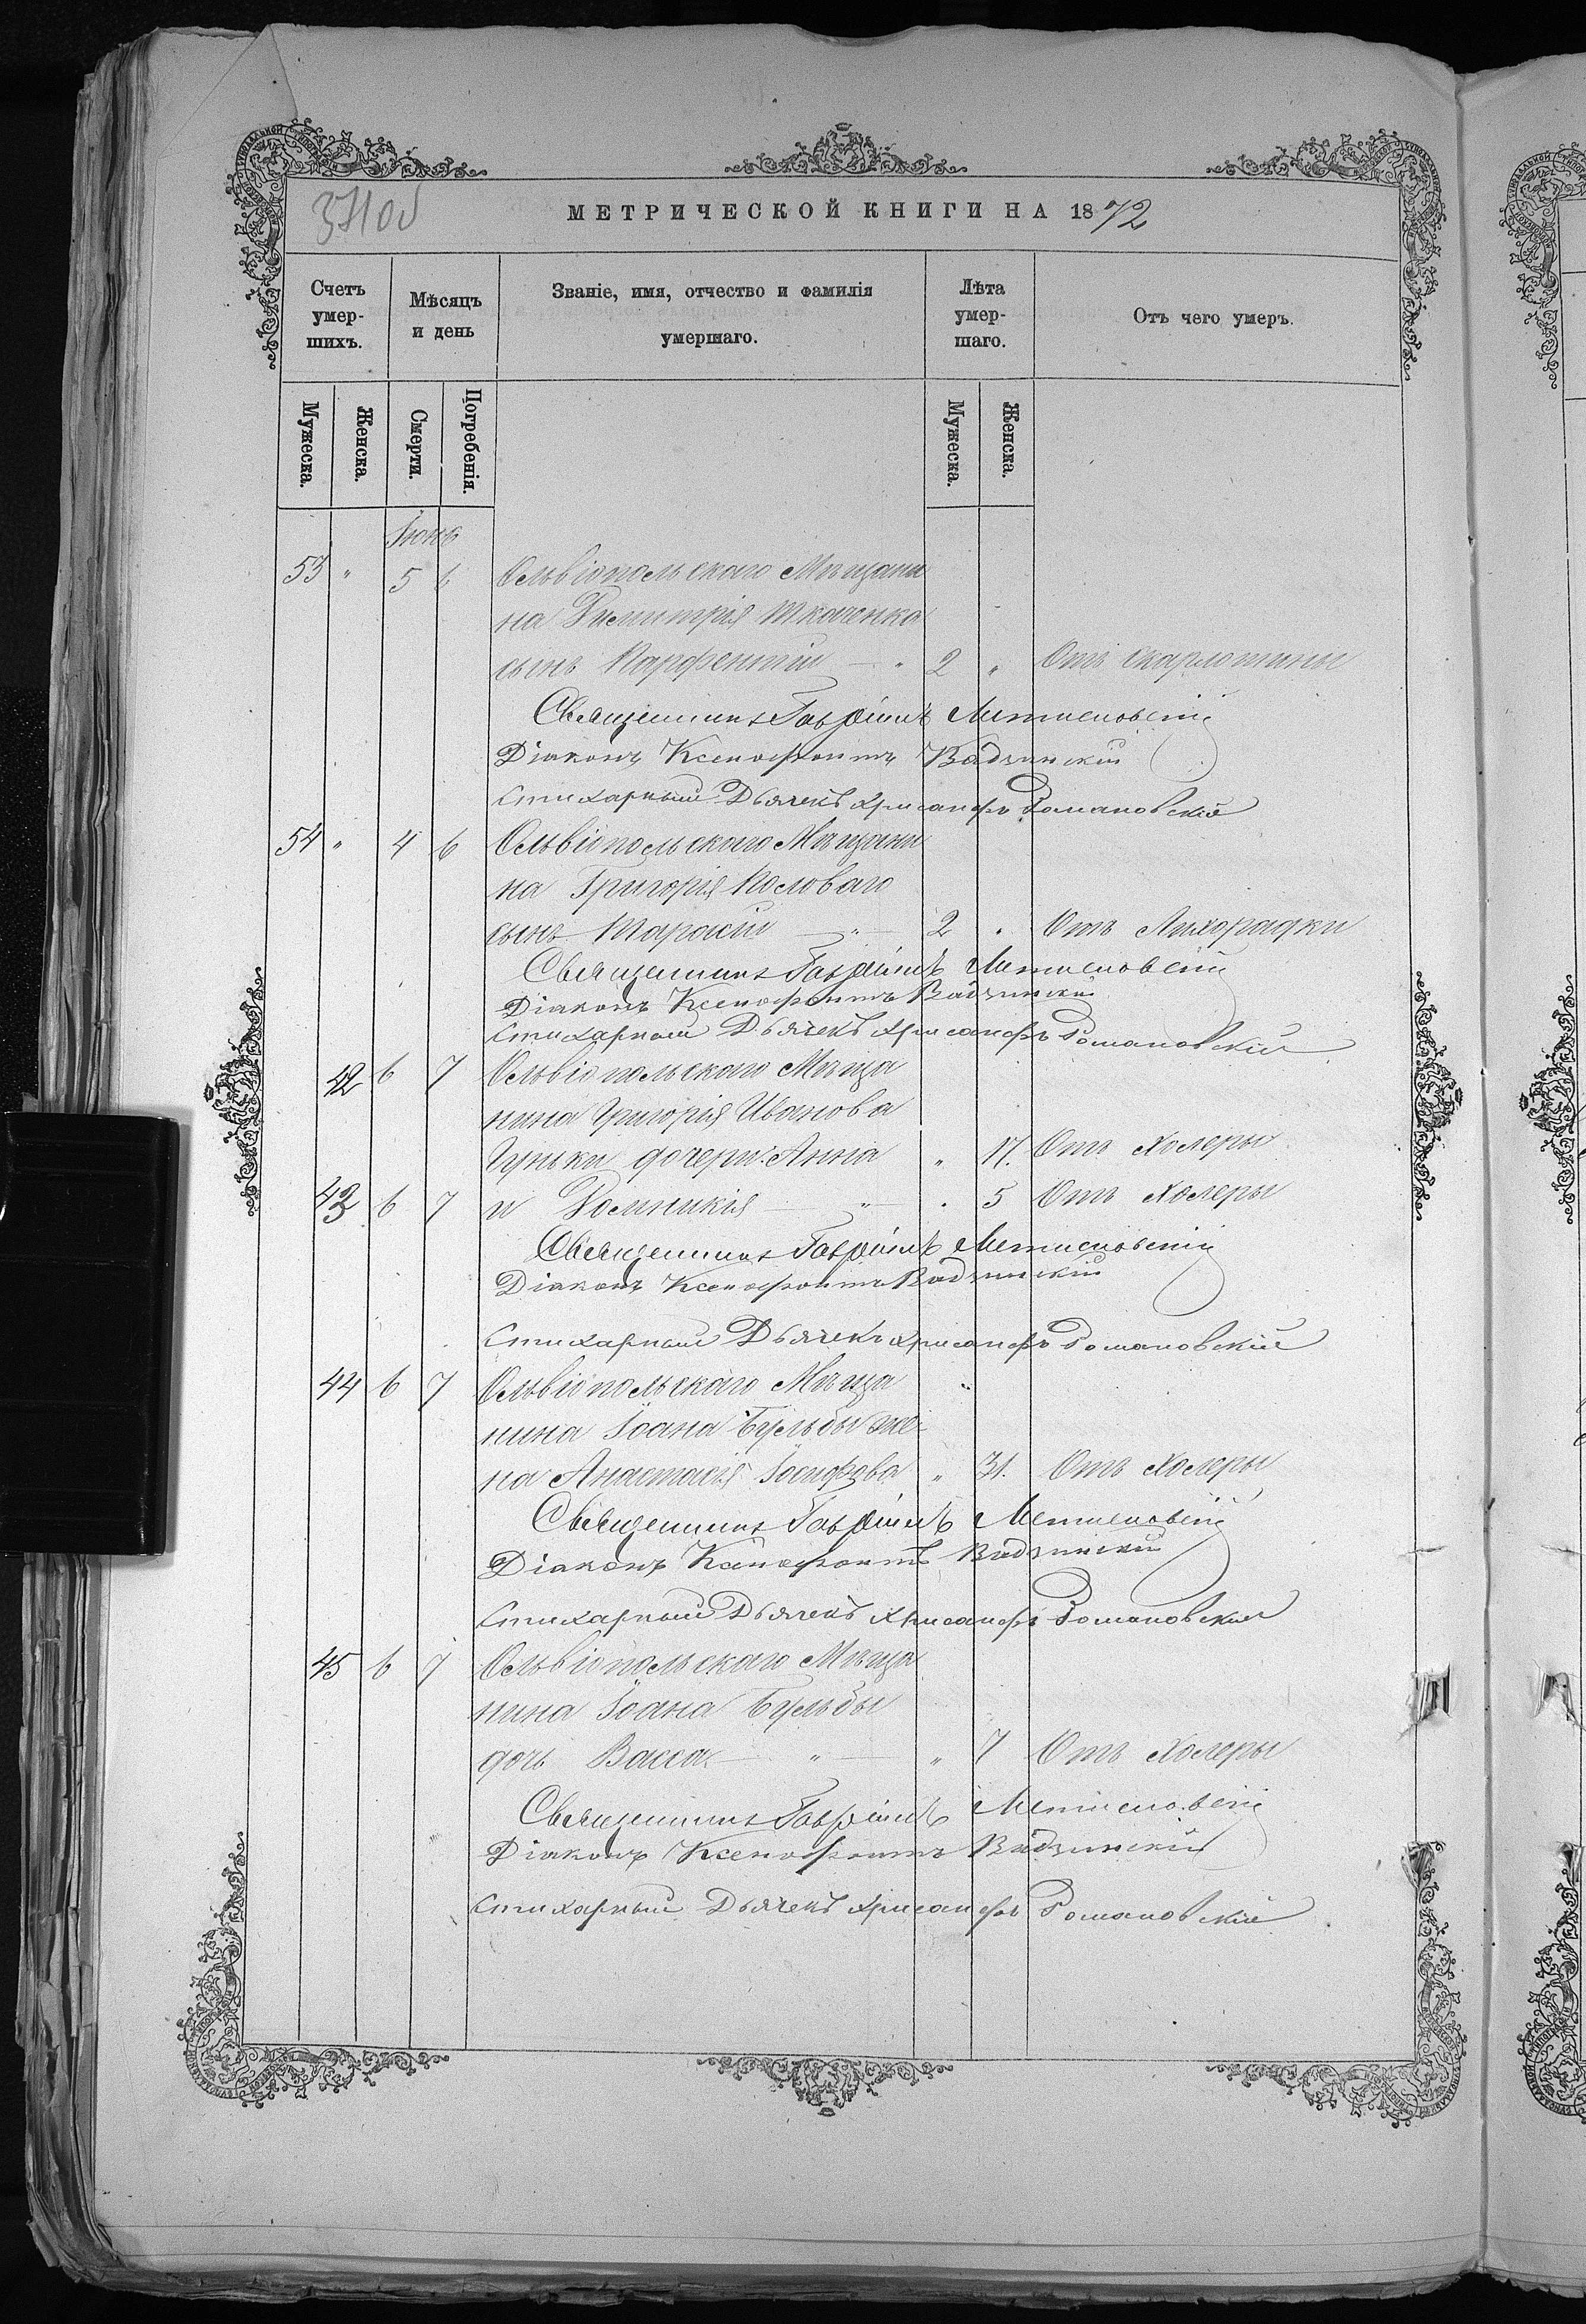 371об
МЕТРИЧЕСКОЙ КНИГИ НА 1872
Счетъ умер-шихъ.
Мѣсяцъ и день
Званіе, имя, отчество и фамилія умершаго.
Лѣта умер-шаго.
Отъ чего умеръ.
Мужеска. Женска. Смерти. Погребенія. Мужеска. Женска.
Іюнь
53 " 5 6 Ольвіопольскаго Мѣщани
на Димитрія Ткаченка
сынъ Парфентій — " 2 " Отъ скарлотины
Священникъ Гавріилъ
Діаконъ Ксенофонтъ Вадзинскій
Стихарный Дьячекъ Хрисанфъ Романовскій
54 " 4 6 Ольвіопольскаго Мѣщани
на Григорія
сынъ Тарасій — " — 2 " Отъ Лихорадки
Священникъ Гавріилъ
Діаконъ Ксенофонтъ Вадзинскій
Стихарный Дьячекъ Хрисанфъ Романовскій
42 6 7 Ольвіопольскаго Мѣща
нина Григорія Иванова
Гуньки дочери: Анна " 17. Отъ Холеры
43 6 7 и Домникія — " — " 5 Отъ Холеры
Священникъ Гавріилъ
Діаконъ Ксенофонтъ Вадзинскій
Стихарный Дьячекъ Хрисанфъ Романовскій
44 6 7 Ольвіопольскаго Мѣща "
нина Іоана Бульбы же-
на Анастасія Іосифова " 31. Отъ Холеры
Священникъ Гавріилъ
Діаконъ Ксенофонтъ Вадзинскій
Стихарный Дьячекъ Хрисанфъ Романовскій
45 6 7 Ольвіопольскаго Мѣща
нина Іоана Бульбы
дочь Васса — " — " 7 Отъ Холеры
Священникъ Гавріилъ
Діаконъ Ксенофонтъ Вадзинскій
Стихарный Дьячекъ Хрисанфъ Романовскій